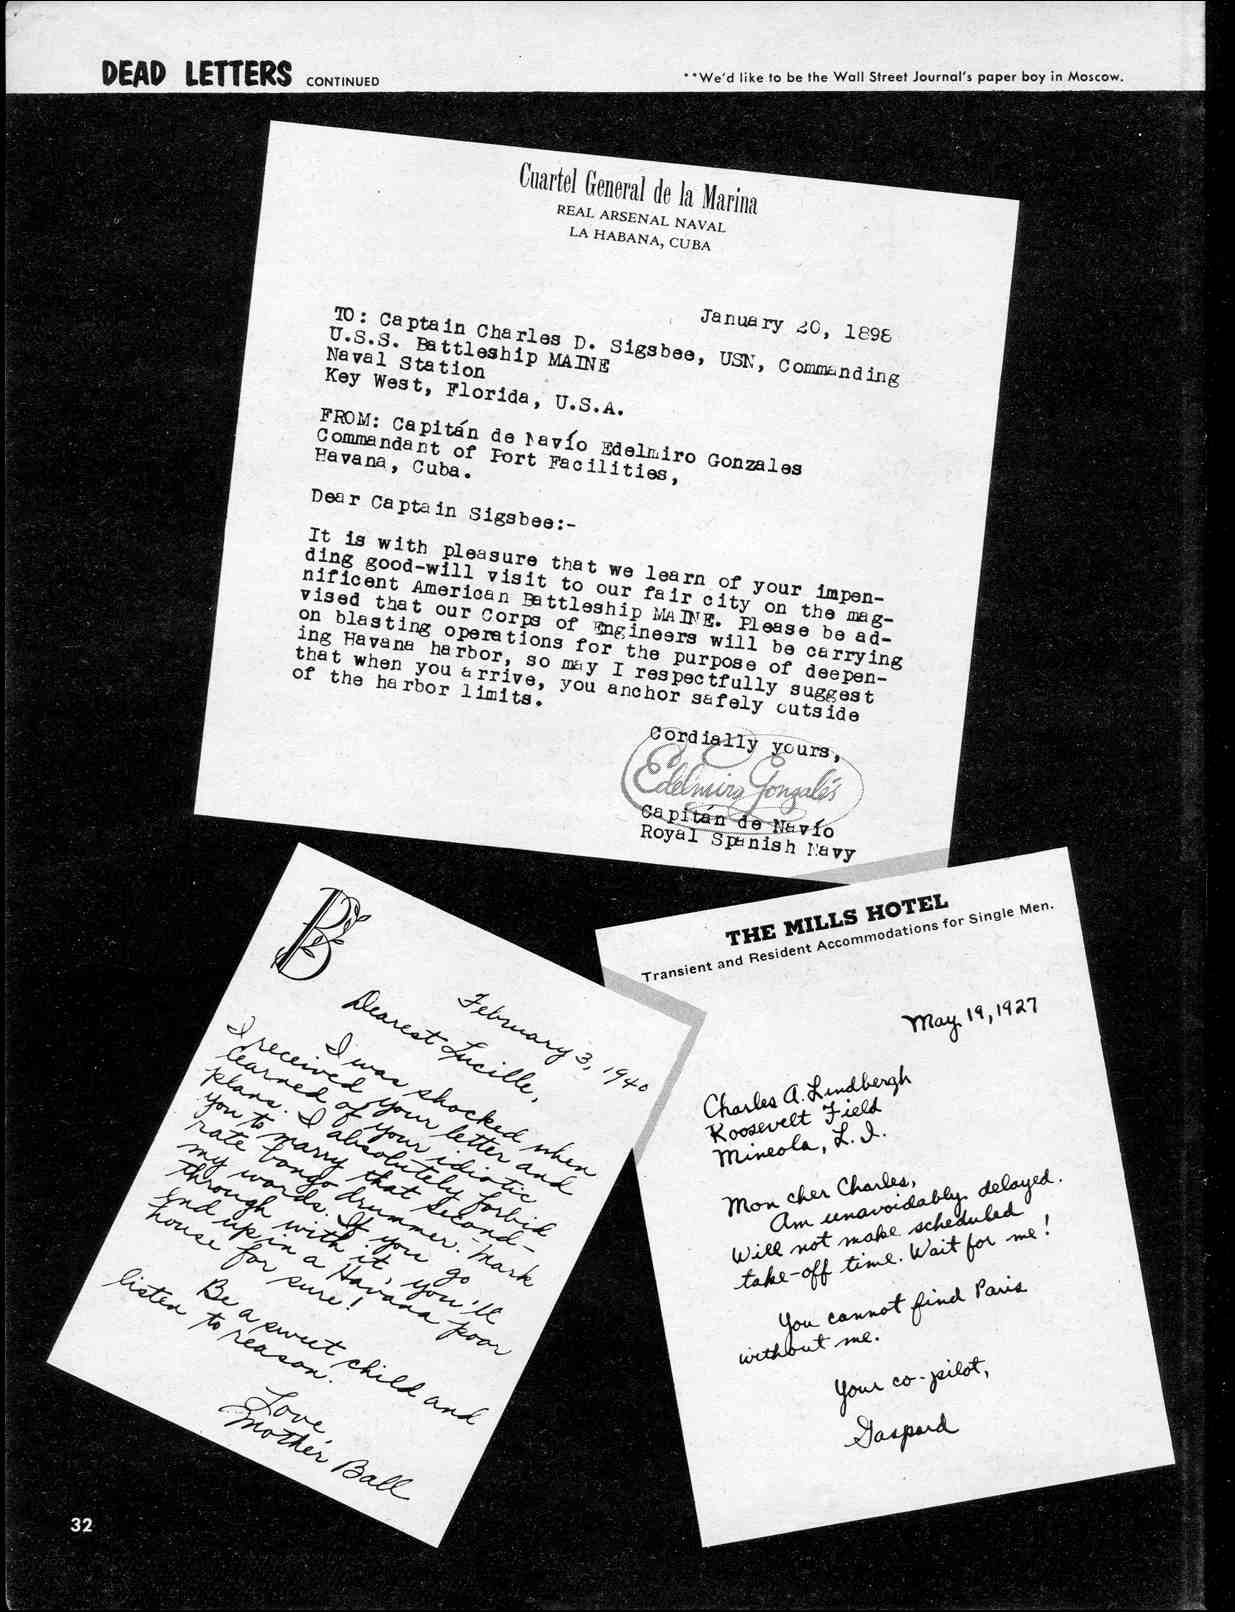 DEAD LETTERS CONTINUED
**We'd like to be the Wall Street Journal's paper boy in Moscow.
Cuartel General de la Marina
REAL ARSENAL NAVAL
LA HABANA, CUBA
January 20, 1898
TO: Captain Charles D. Sigsbee, USN, Commanding
U.S.S. Battleship MAINE
Naval Station
Key West, Florida, U.S.A.
FROM: Capitán de Navío Edelmiro Gonzales
Commandant of Port Facilities,
Havana, Cuba.
Dear Captain Sigsbee:-
It is with pleasure that we learn of your impen-
ding good-will visit to our fair city on the mag-
nificent American Battleship MAINE. Please be ad-
vised that our Corps of Engineers will be carrying
on blasting operations for the purpose of deepen-
ing Havana harbor, so may I respectfully suggest
that when you arrive, you anchor safely outside
of the harbor limits.
Cordially yours,
Edelmiro Gonzalés
Capitán de Navío
Royal Spanish Navy
B
February 3, 1940
Dearest Lucille,
I was shocked when
I received your letter and
learned of your idiotic
plans. I absolutely forbid
you to marry that second-
rate bongo drummer. Mark
my words. If you go
through with it, you'll
end up in a Havana poor
house for sure!
Be a sweet child and
listen to reason.
Love,
Mother Ball
THE MILLS HOTEL
Transient and Resident Accommodations for Single Men.
May 19, 1927
Charles A. Lindbergh
Roosevelt Field
Mineola, L. I.
Mon cher Charles,
Am unavoidably delayed.
Will not make scheduled
take-off time. Wait for me!
You cannot find Paris
without me.
Your co-pilot,
Gaspard
32